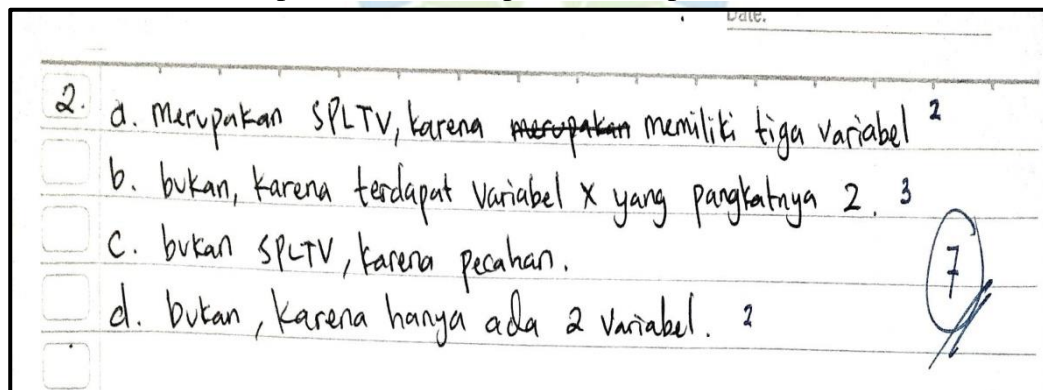 Date.
2. a. Merupakan SPLTV, karena merupakan memiliki tiga variabel 2
b. bukan, karena terdapat variabel x yang pangkatnya 2. 3
c. bukan SPLTV, karena pecahan.
d. bukan, karena hanya ada 2 variabel. 2
7